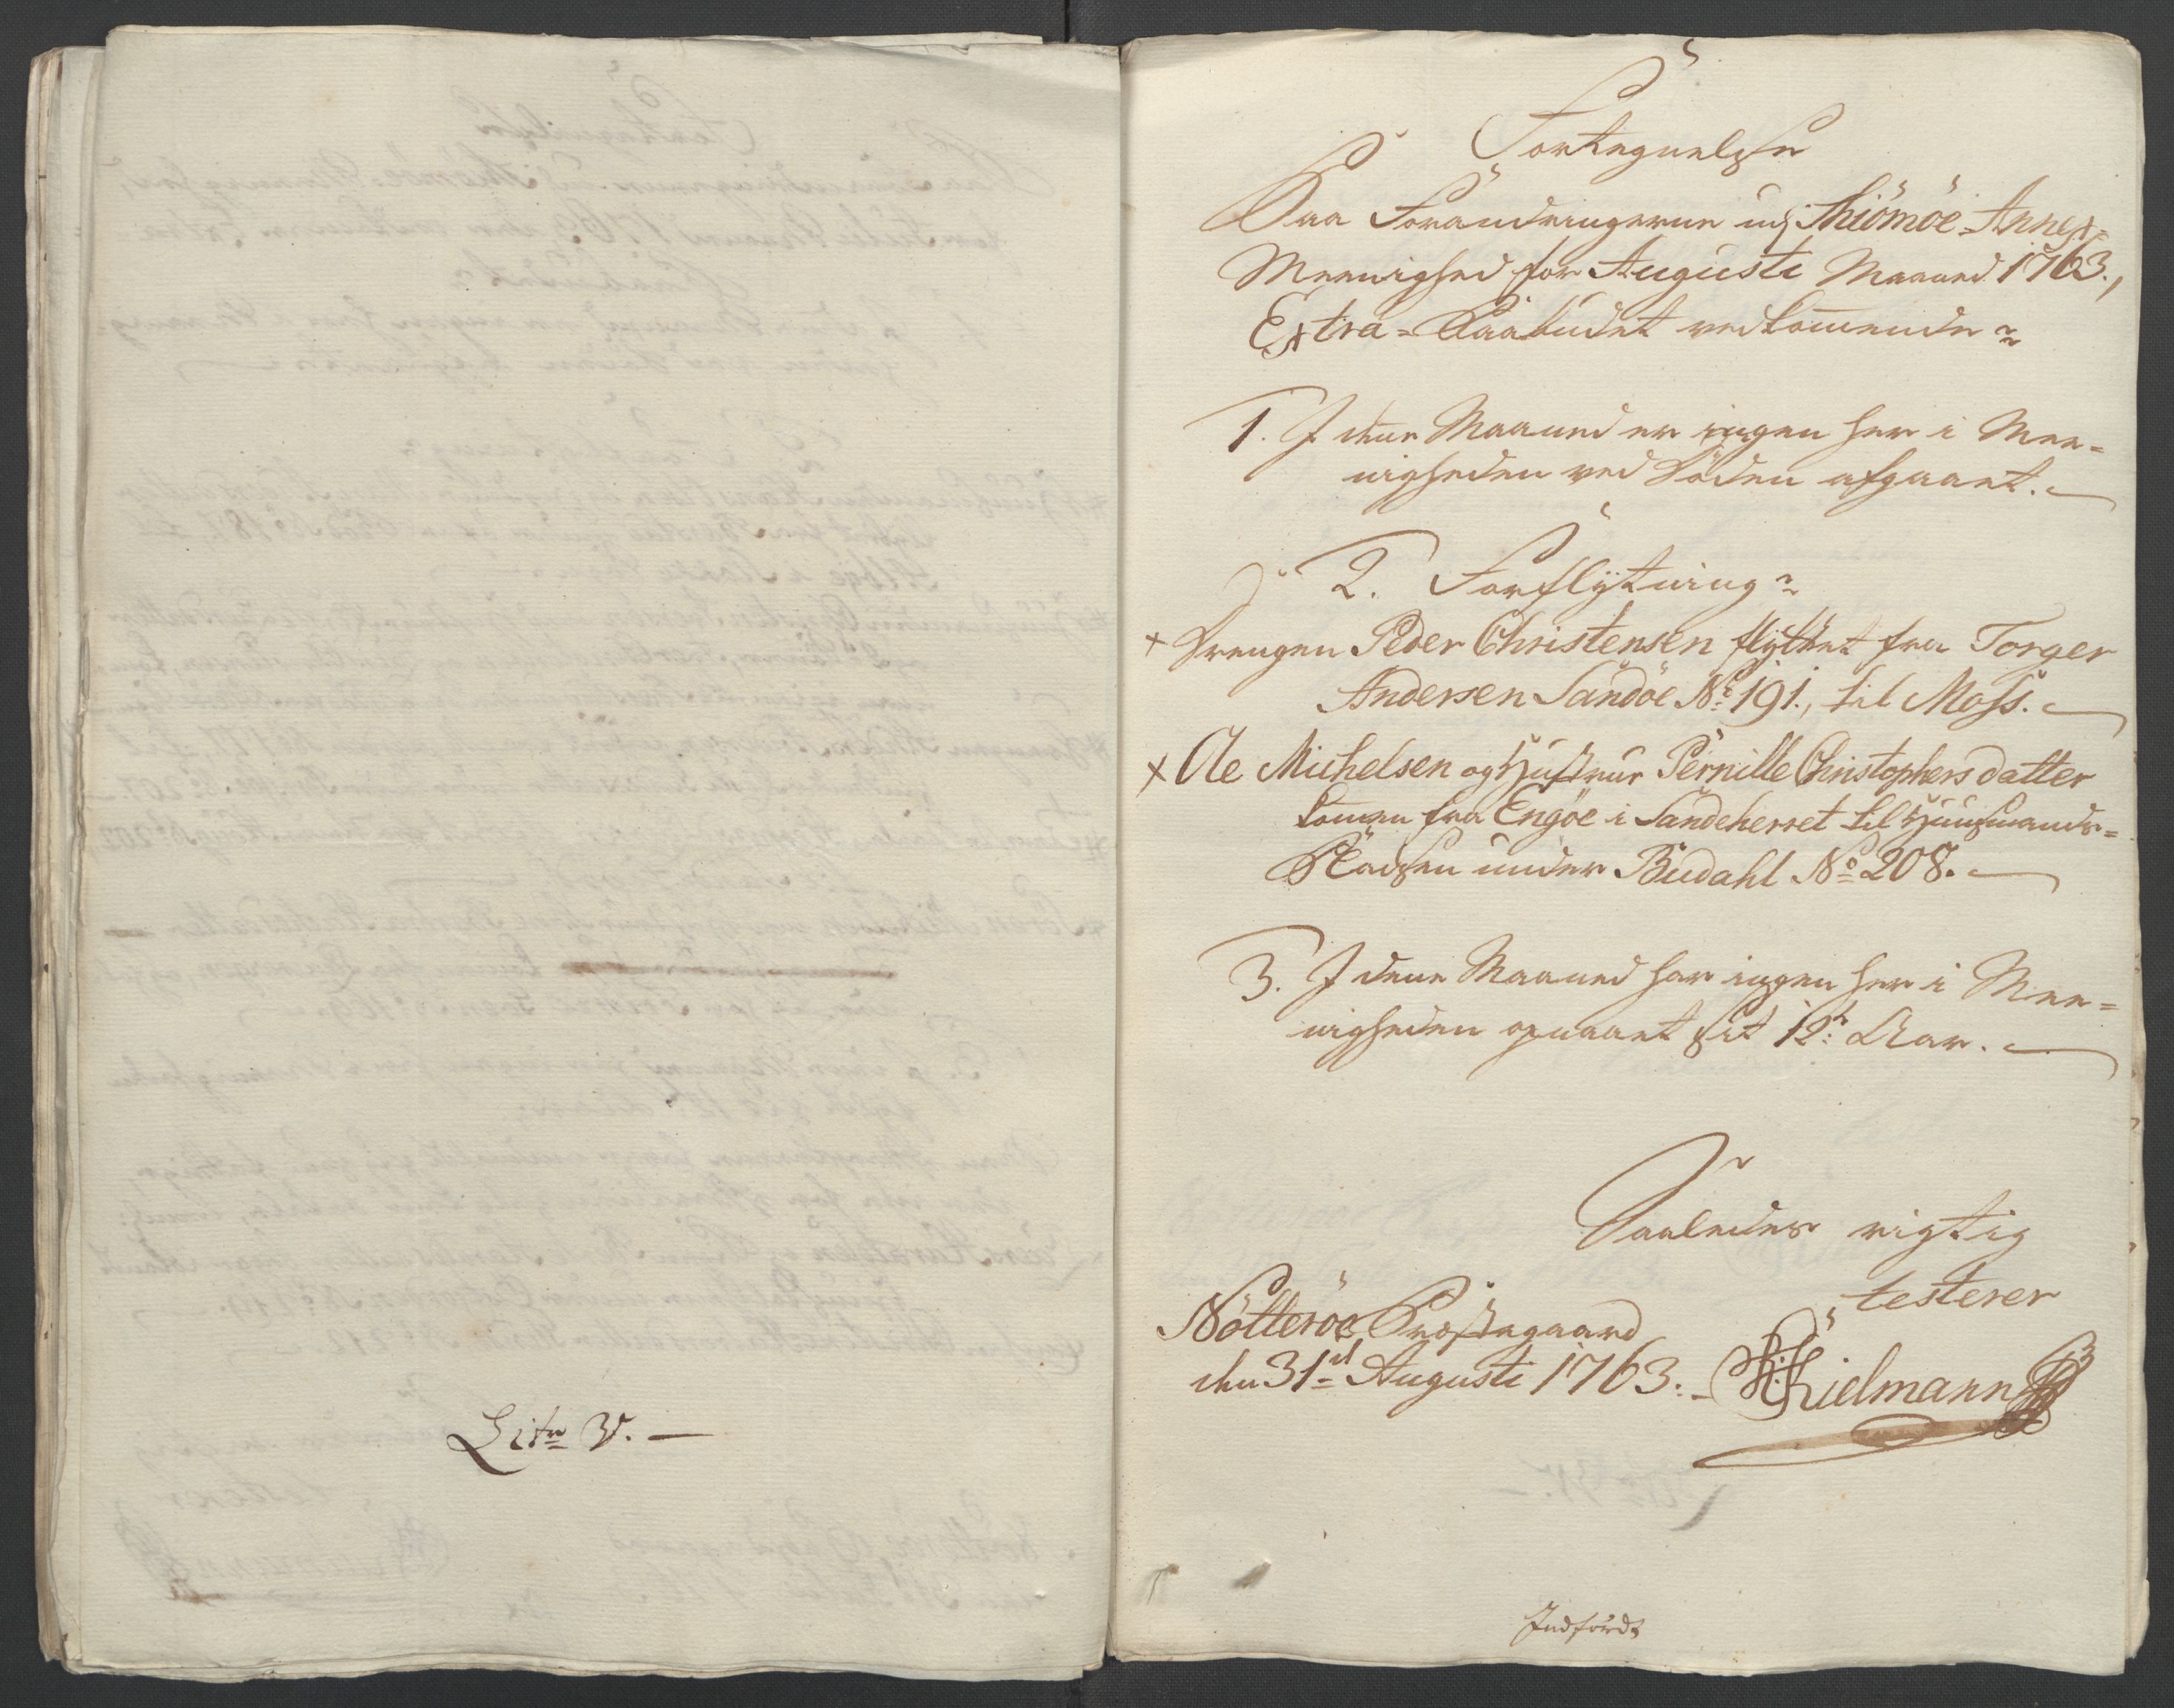 Litr W. —
Fortegnelse
Paa Forandringerne udj Thiömöe Annex-
Meenighed for Augusti Maaned 1763.,
Extra-Paabudet vedkom̄ende
1. I den̄e Maaned er ingen her i Mee-
nigheden ved Döden afgaaet. —
2. Forflÿtning
+ Drengen Peder Christensen flÿttet fra Torger
Andersen Sandöe No 191., til Moss. —
+ Ole Michelsen og Hustrue Pernille Christophersdatter
kom̄en fra Engöe i Sandeherret til Huusmands-
Pladsen under Budahl No 208. —
3. I den̄e Maaned har ingen her i Mee-
nigheden opnaaet sit 12te Aar. —
Saaledes rigtig
testerer
Nötteröe Præstegaard
den 31te Augusti 1763. — Kielmann
Indfördt